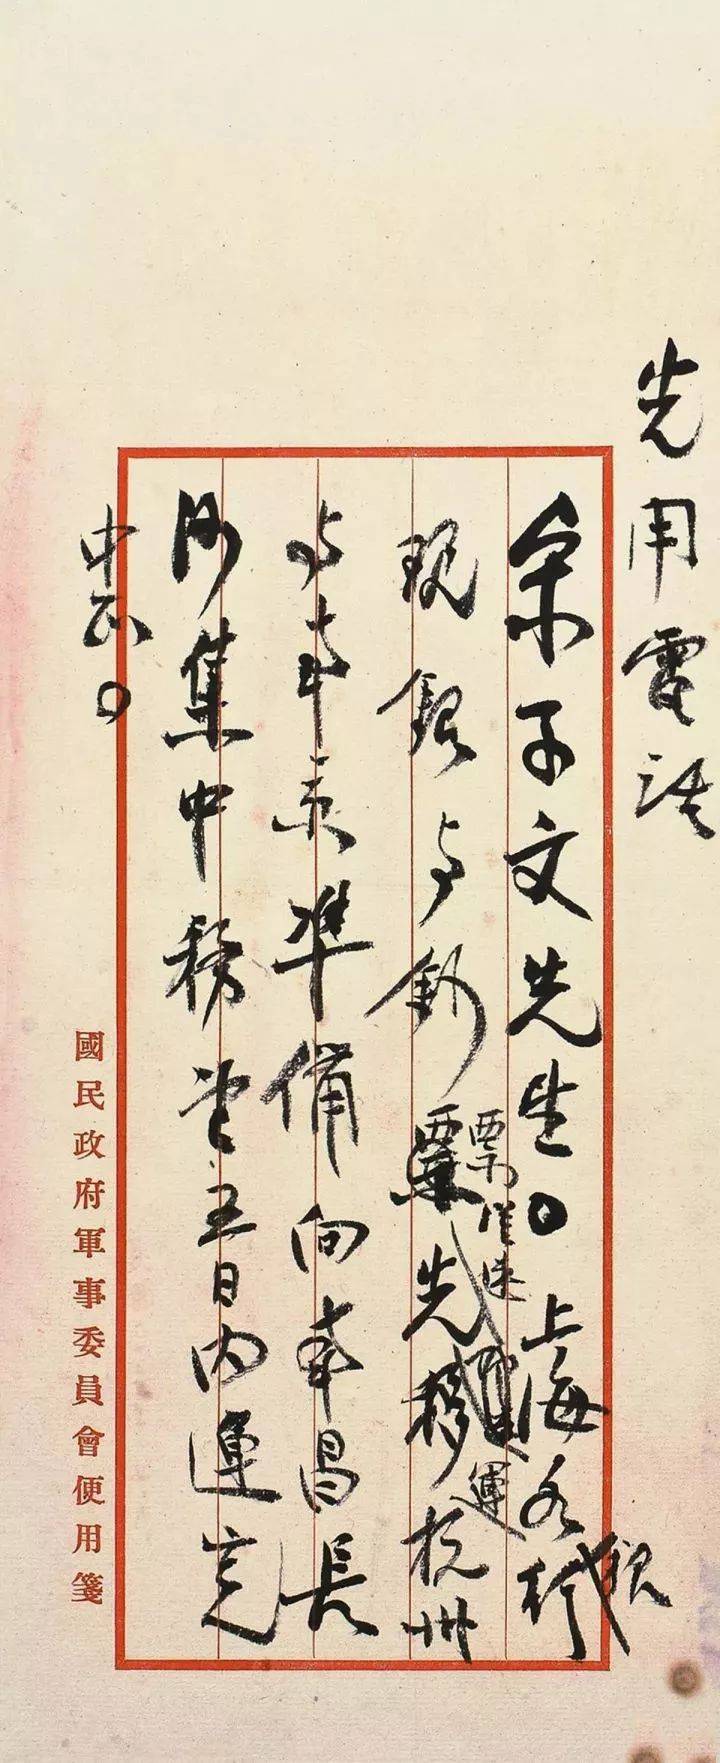 先用電話
宋子文先生。上海各行
現
現銀与鈔票先移杭州
票從速
運
与南京準備向南昌長
沙集中務望五日内運完
中正。
國民政府軍事委員會便用箋